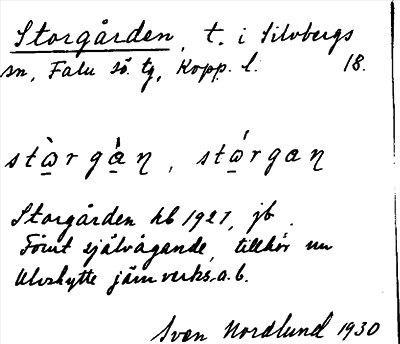 Storgården, t. i Silvbergs
sn, Falu sö. tg, Kopp. l. 18.
stɷ̀rgàn, stɷ́rgan
Storgården hb 1927, jb.
Förut självägande, tillhör nu
Ulvshytte järnverks a.b.
Sven Nordlund 1930